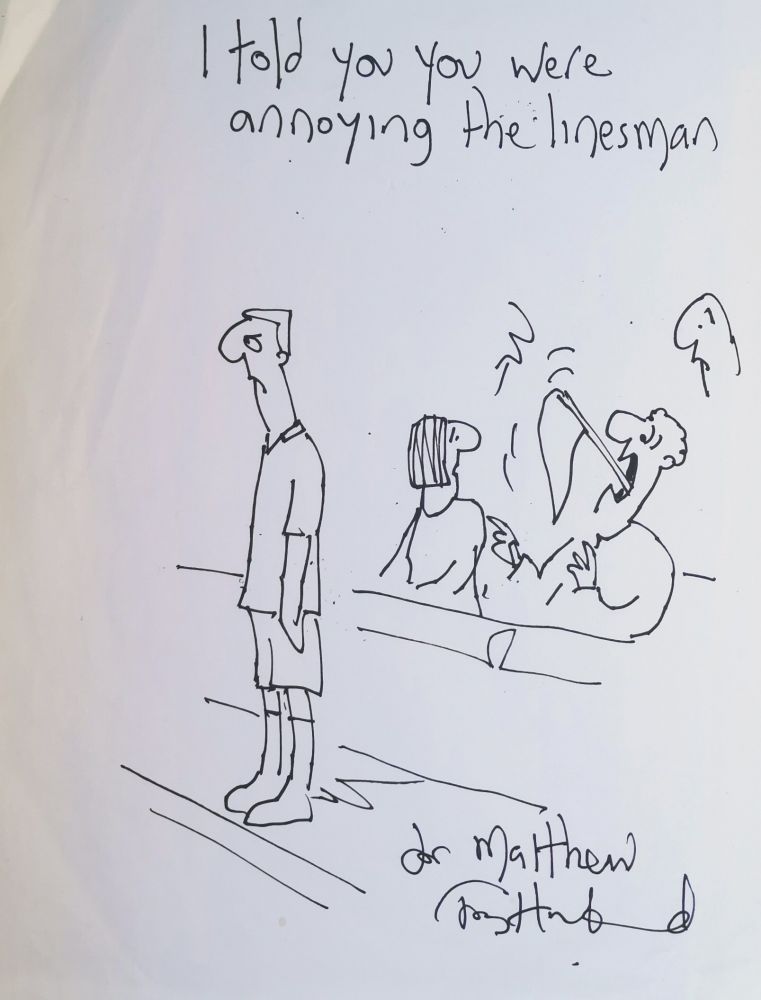 I told you you were
annoying the linesman
for Matthew
Tony Husband